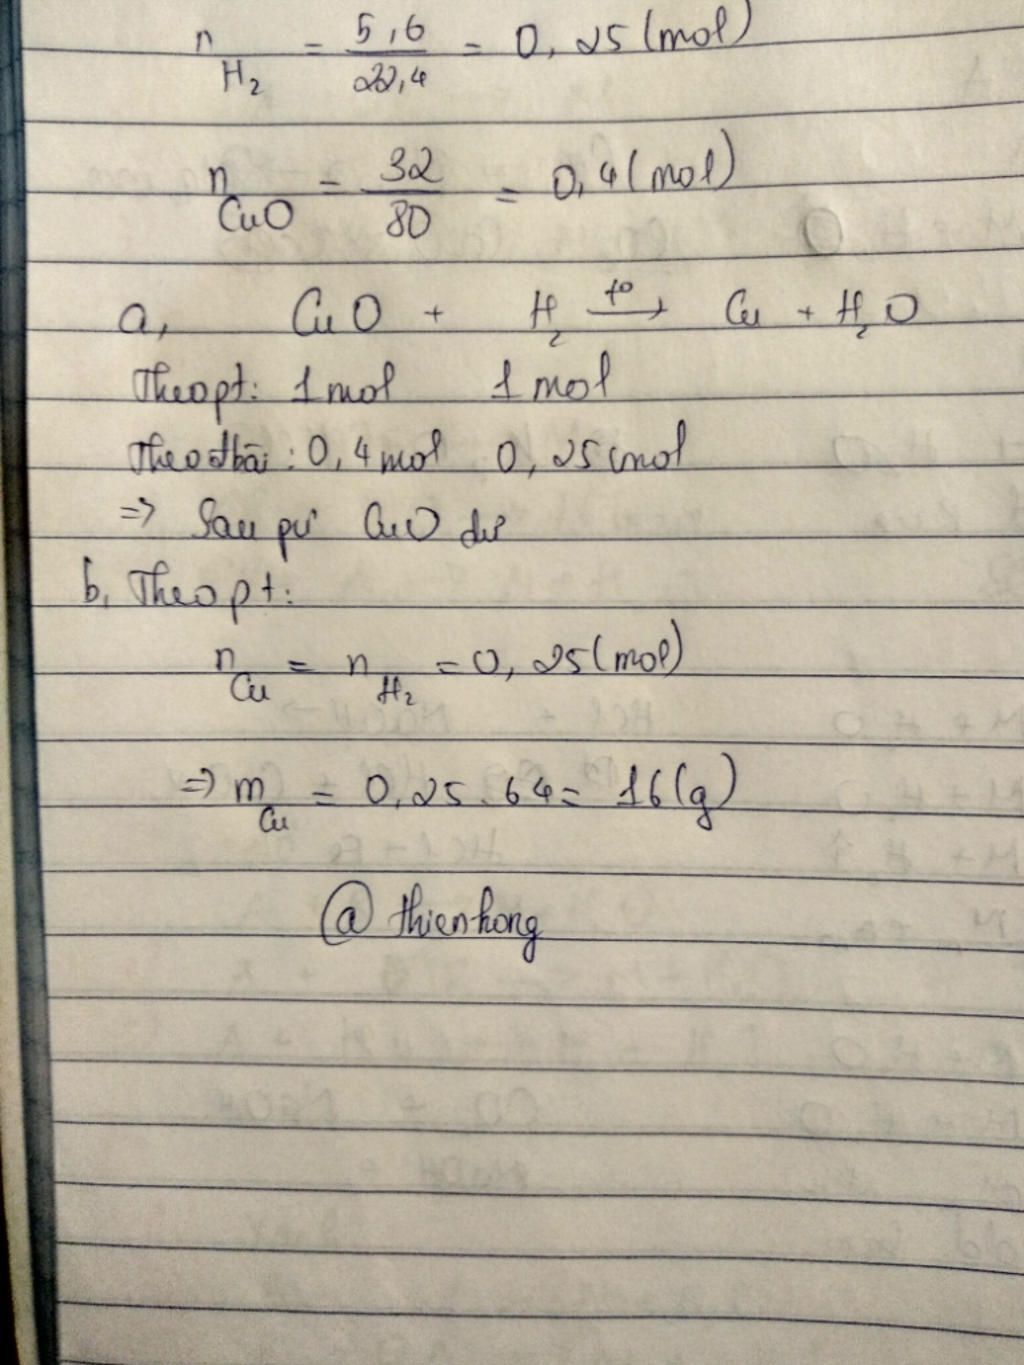 n H₂ = 5,6 / 22,4 = 0,25 (mol)
n CuO = 32 / 80 = 0,4 (mol)
a, CuO + H₂ →t° Cu + H₂O
Theo pt: 1 mol 1 mol
Theo đbài: 0,4 mol 0,25 mol
=> Sau pư CuO dư
b, Theo pt:
n Cu = n H₂ = 0,25 (mol)
=> m Cu = 0,25 . 64 = 16 (g)
@ thienhong